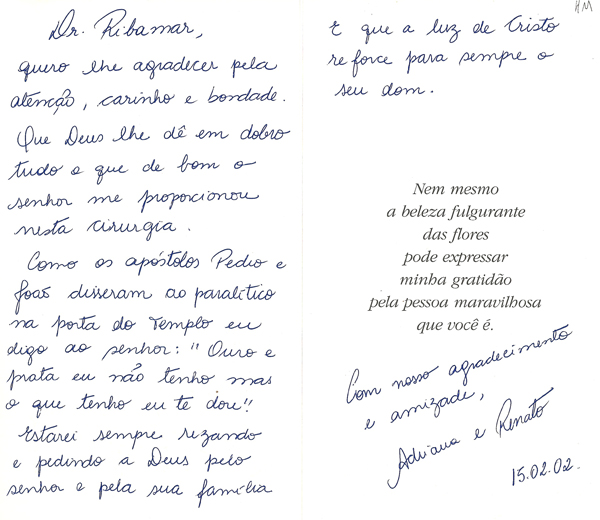 Dr. Ribamar,
quero lhe agradecer pela
atenção, carinho e bondade.
Que Deus lhe dê em dobro
tudo o que de bom o
senhor me proporcionou
nesta cirurgia.
Como os apóstolos Pedro e
João disseram ao paralítico
na porta do Templo eu
digo ao senhor: "Ouro e
prata eu não tenho mas
o que tenho eu te dou"!
Estarei sempre rezando
e pedindo a Deus pelo
senhor e pela sua família
HM
E que a luz de Cristo
reforce para sempre o
seu dom.
Nem mesmo
a beleza fulgurante
das flores
pode expressar
minha gratidão
pela pessoa maravilhosa
que você é.
Com nosso agradecimento
e amizade,
Adriana e Renato
15.02.02.